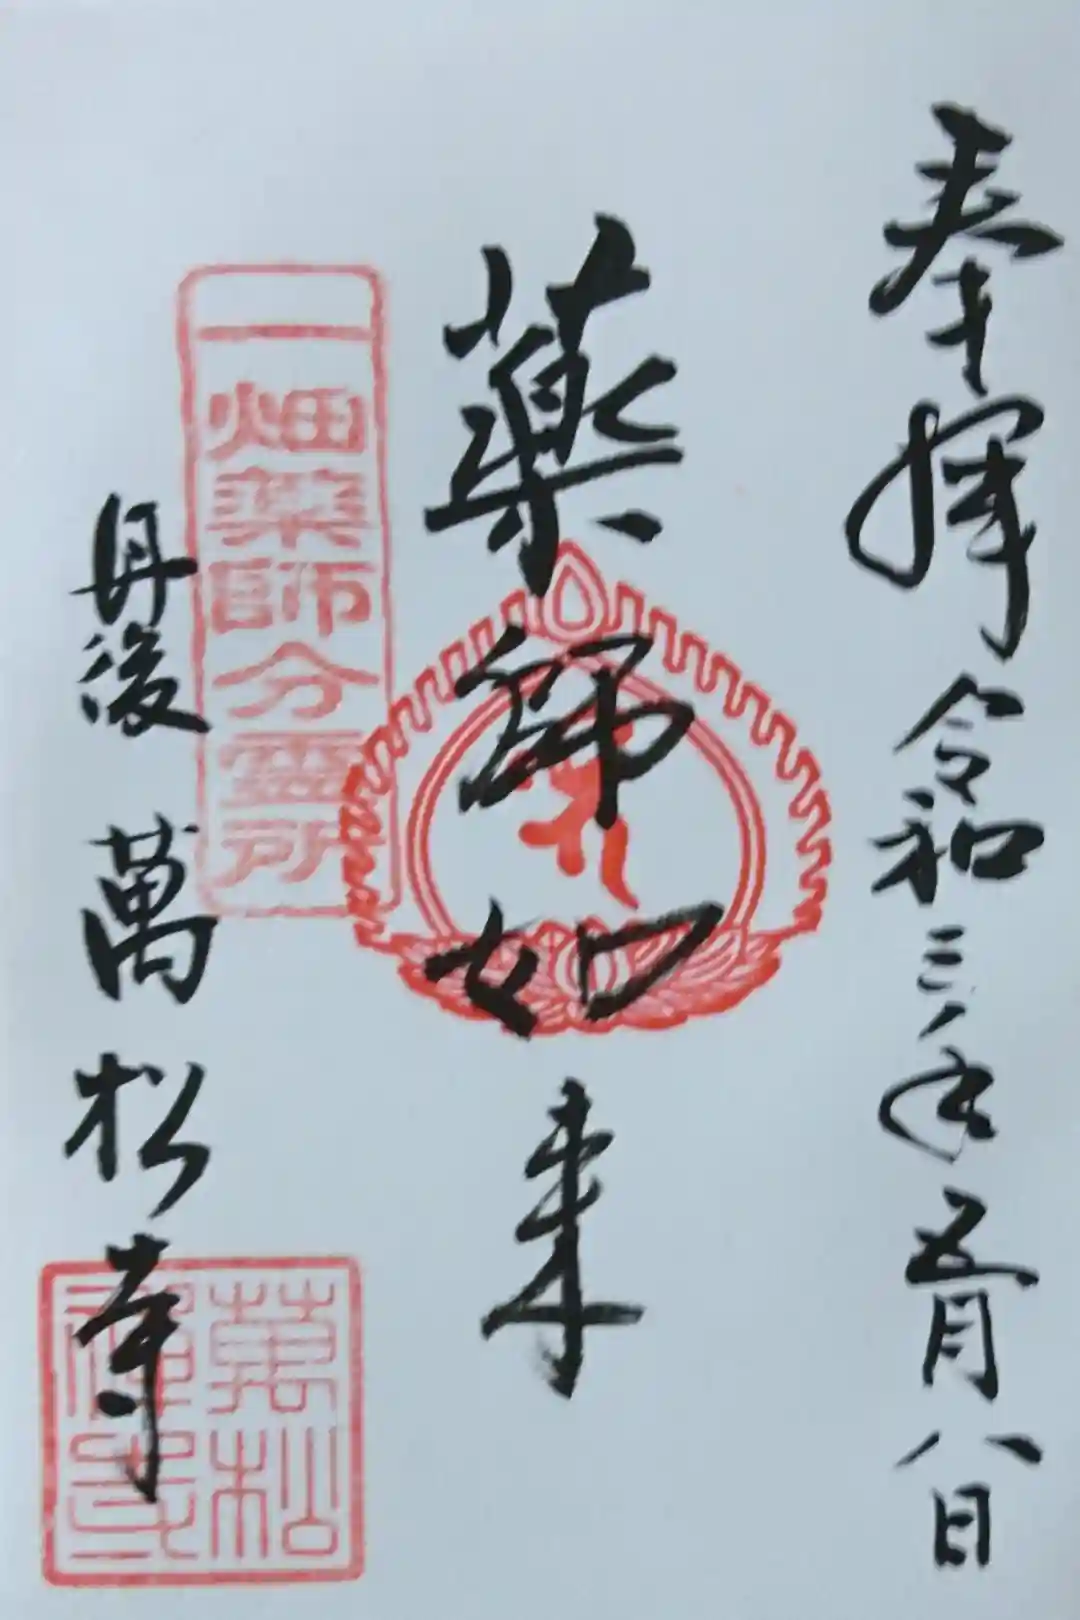 奉拝 令和三年五月八日
薬師如来
一畑薬師分霊所
丹後 萬松寺
萬松
禅寺